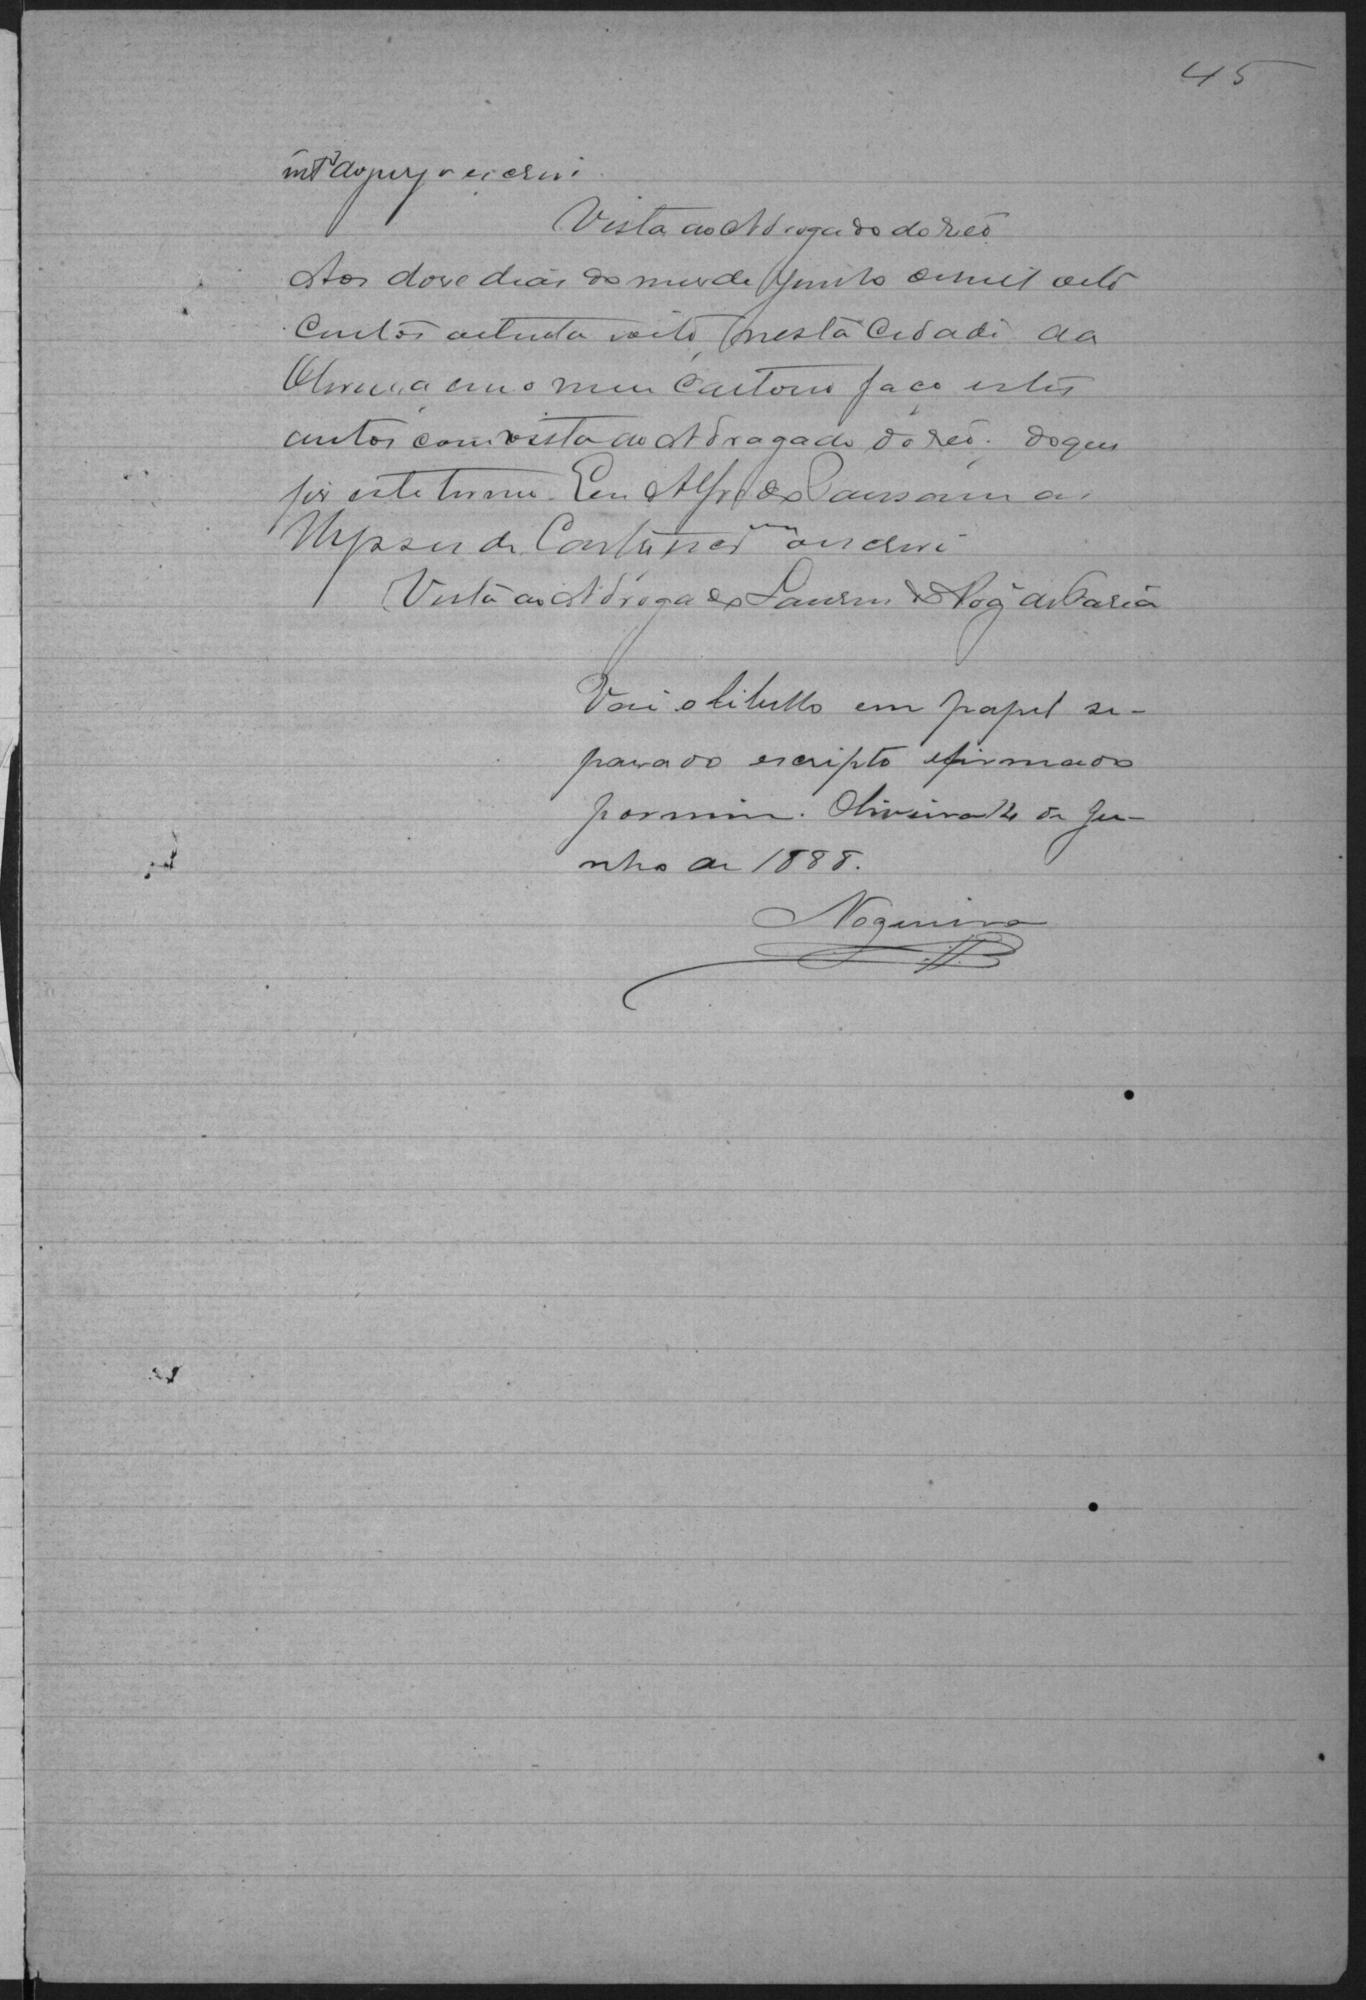 45
int.º do jury o escrevi.
Vista ao Advogado do reo
Aos dose dias do mes de Junho de mil oito
centos oitenta e oito, nesta Cidade da
Oliveira em o meu Cartorio faço estes
autos com vista ao Advogado do reo. do que
fis este termo. Eu Alfredo
de escrevi
Vista ao Advogado de Faria
Vai o libello em papel se-
parado escripto e firmado
por mim. Oliveira 12 de Ju-
nho de 1888.
Nogueira